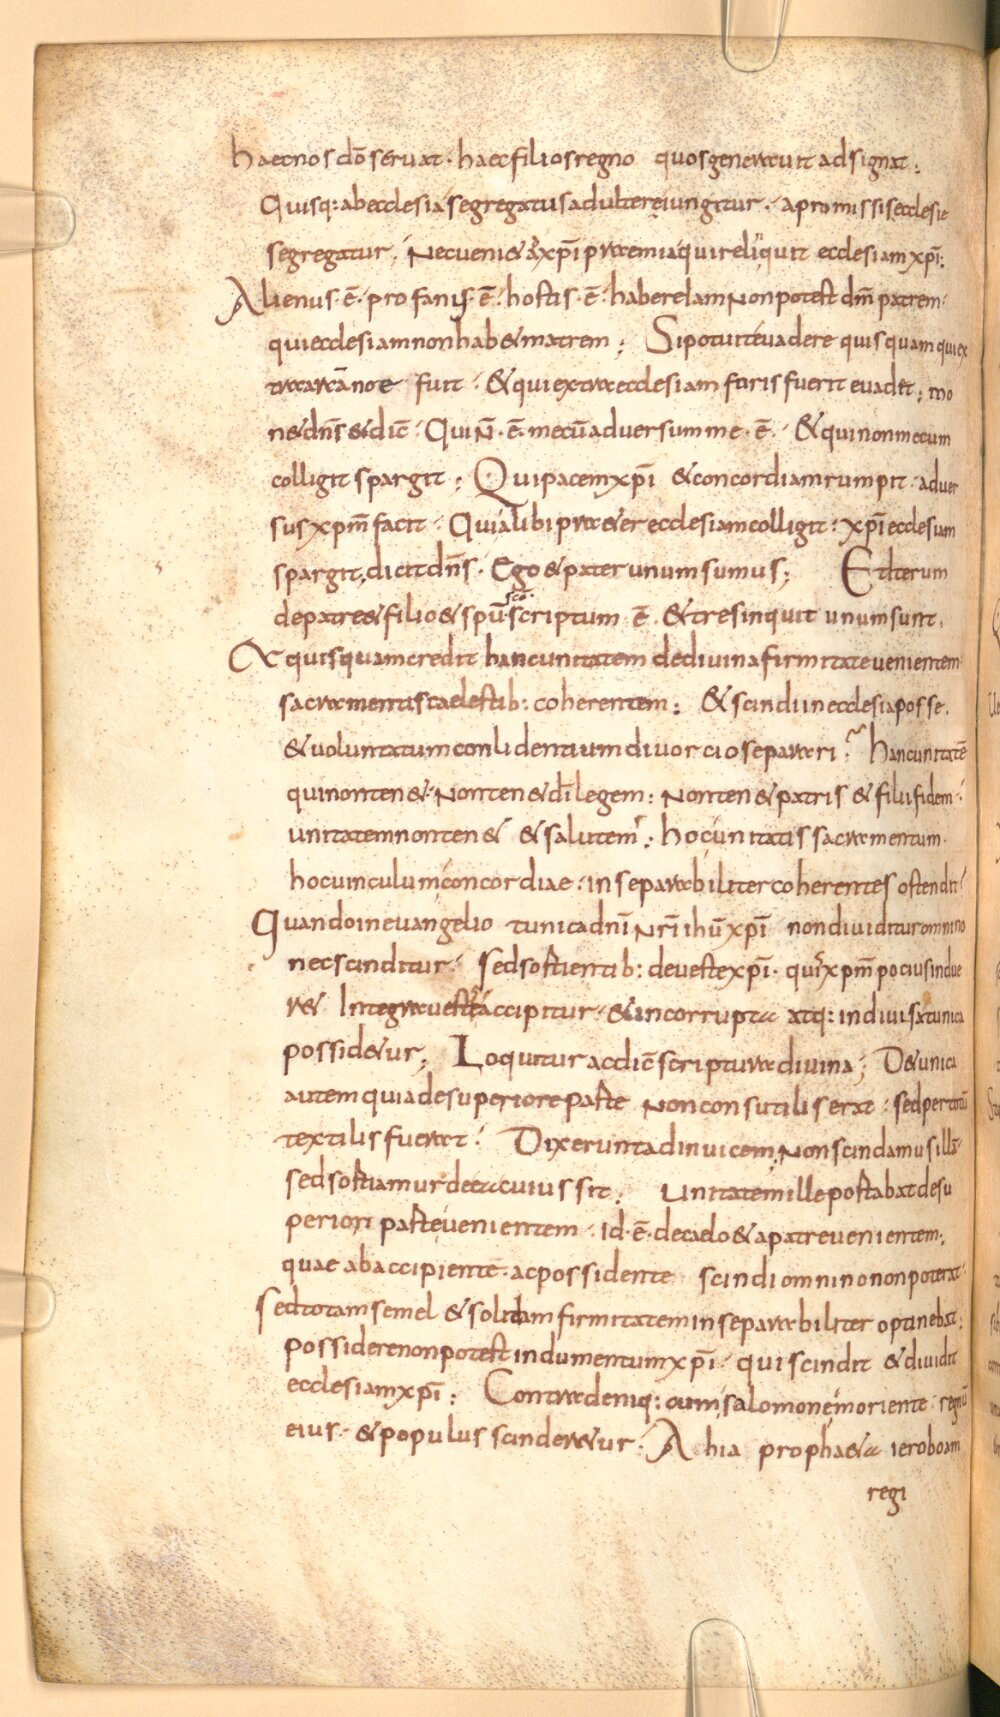 haec nos dō seruat · haec filios regno quos generauit adsignat ·
Quisq: ab ecclesia segregatus adulterę iungitur · a promissis ecclesie
segregatur · Nec ueni& ad xp̄i praemia qui reliquit ecclesiam xp̄i ·
Alienus · ē · profanus · ē · hostis · ē · habere iam non potest dm̄ patrem ·
qui ecclesiam non hab& matrem ; Si potuit euadere quisquam qui ex
tra arcā noe fuit · & qui extra ecclesiam foris fuerit euadet ; mo
n& dn̄s & dic̄ · Qui N̄ · ē · mecū aduersum me · ē · & qui non mecum
colligit spargit ; Qui pacem xp̄i & concordiam rumpit · aduer
sus xpm̄ facit · Qui alibi praeter ecclesiam colligit · xp̄i ecclesiam
spargit, dicit dn̄s · Ego & pater unum sumus ; Et iterum
de patre & filio & spū sc̄o scriptum ē · & tres inquit unum sunt ·
Et quisquam credit hanc unitatem de diuina firmitate uenientem
sacramentis caelestib: coherentem ; & scindi in ecclesia posse ·
& uoluntatum conlidentium diuorcio separari ? hanc unitatē
qui non ten& · Non ten& dī legem · Non ten& patris & filii fidem ·
unitatem non ten& & salutem ; hoc unitatis sacramentum ·
hoc uinculum concordiae · inseparabiliter coherentes ostendit ·
Quando in euangelio tunica dn̄i nr̄i ihū xp̄i non diuiditur omnino
nec scinditur · sed sortientib: de ueste xp̄i · quis xpm̄ pocius indue
r& Integra uestis accipitur · & incorrupta atq: indiuisa tunica
possid&ur ; Loquitur ac dic̄ scriptura diuina ; De tunica
autem quia de superiore parte non consutilis erat · sed per totū
textilis fuerat · Dixerunt ad inuicem, Non scindamus illā
sed sortiamur de ea cuius sit ; Unitatem ille portabat de su
periori parte uenientem · id · ē · de caelo & a patre uenientem ·
quae ab accipiente · ac possidente scindi omnino non poterat ·
sed totam semel & solidam firmitatem inseparabiliter optinebat ·
possidere non potest indumentum xp̄i · qui scindit & diuidit
ecclesiam xp̄i ; Contra deniq: cum salomone moriente · regnū
eius · & populus scinder&ur · Ahia proph&a ieroboam
regi